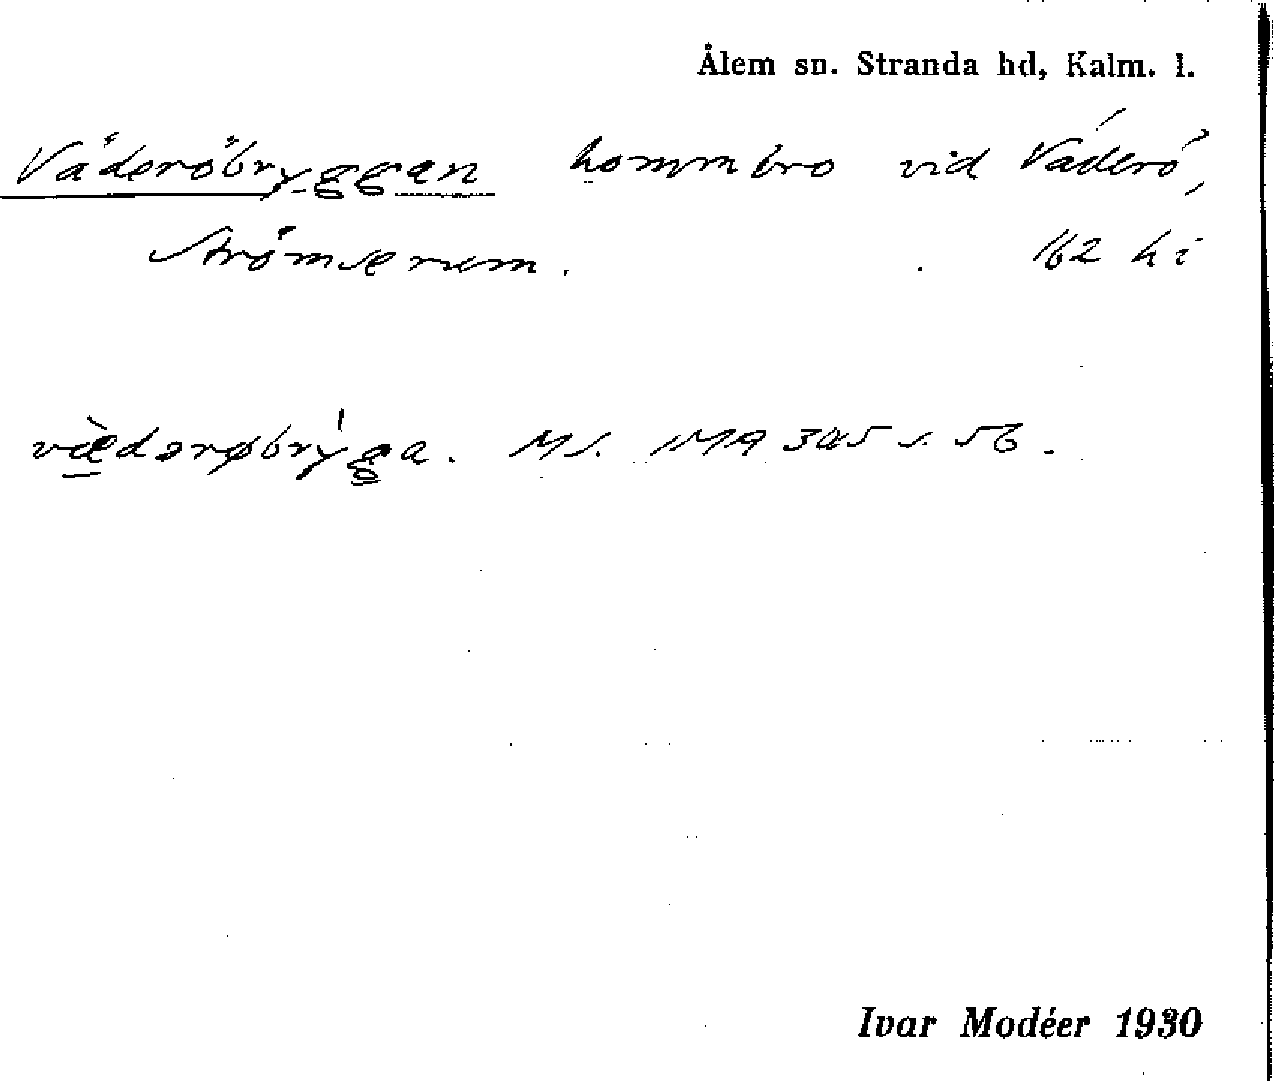 Ålem sn. Stranda hd, Kalm. l.
Väderöbryggan hommbro vid Väderö,
Strömserum. 162 hi
vædərøbrỳga. Ms. IMA 305 s. 56.
Ivar Modéer 1930